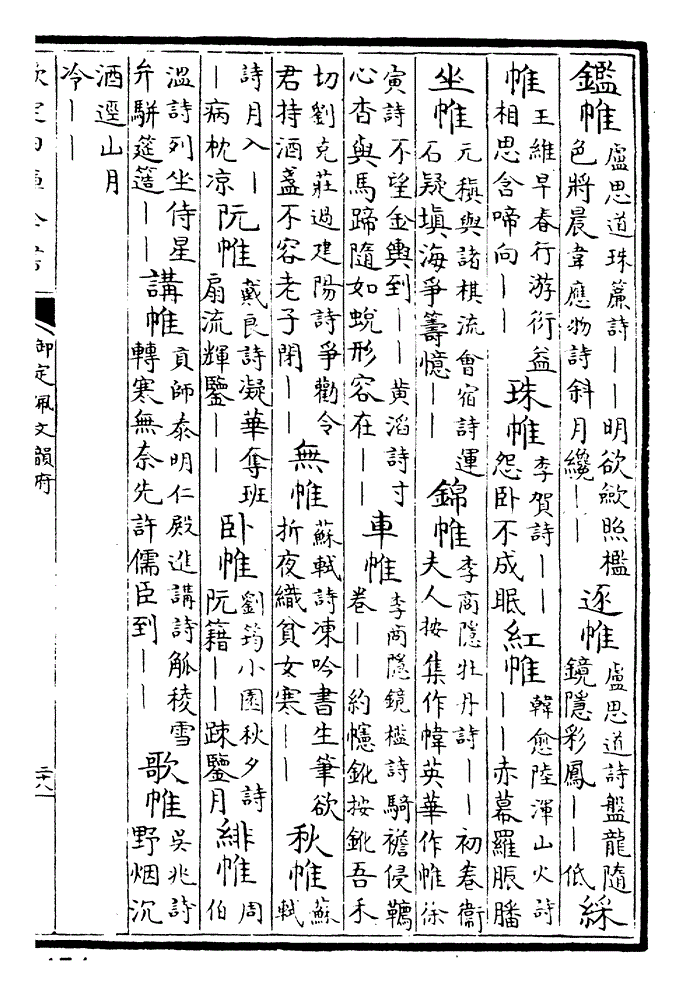 鑑帷盧思道珠簾詩——明欲斂照檻色將晨韋應物詩斜月纔——逐帷盧思道詩盤龍隨鏡隱彩鳳——低綵
帷王維早春行游衍益相思含啼向——珠帷李賀詩——怨卧不成眠紅帷韓愈陸渾山火詩——赤幕羅脤膰
坐帷元稹與諸棋流會宿詩運石疑填海爭籌憶——錦帷李商隱牡丹詩——初卷衞夫人按集作幃英華作帷徐
寅詩不望金輿到——黃滔詩寸心杳與馬蹄隨如蛻形容在——車帷李商隱鏡檻詩騎襜侵鞴卷——約幰鈋按鈋吾禾
切劉克莊過建陽詩爭勸令君持酒盞不容老子閉——無帷蘇軾詩凍吟書生筆欲折夜織貧女寒——秋帷蘇軾
詩月入——病枕凉阮帷戴良詩凝華奪班扇流輝鑒——卧帷劉筠小園秋夕詩阮籍——踈鑒月緋帷周伯
溫詩列坐侍星弁駢筵簉——講帷貢師泰明仁殿進講詩觚稜雪轉寒無奈先許儒臣到——歌帷吳兆詩野烟沉
酒逕山月冷——
欽定四庫全書
御定佩文韻府
二十八